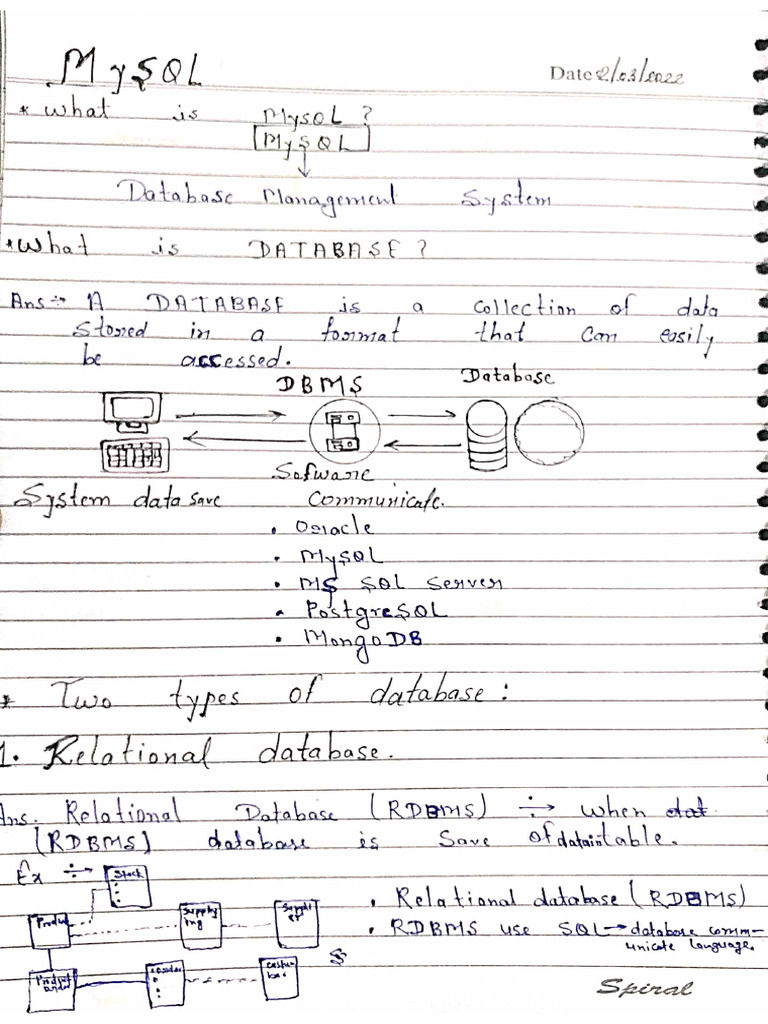 MySQL
Date 2/03/2022
* What is MySQL ?
MySQL
Database Management System
* What is DATABASE ?
Ans :- A DATABASE is a collection of data
stored in a format that can easily
be accessed.
DBMS
Database
Sofware
System data save communicate.
• Oracle
• MySQL
• MS SQL Server
• PostgreSQL
• MongoDB
* Two types of database :
1. Relational database.
Ans. Relational Database (RDBMS) ÷> when dat.
(RDBMS) database is save of data in table.
Ex ÷>
Stock
• Relational database (RDBMS)
Product
• RDBMS use SQL → database comm-
unicate language.
Product
Spiral